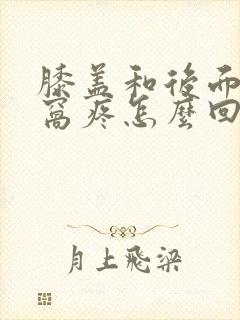 膝盖和後面
窩疼怎麼回
月上飛梁